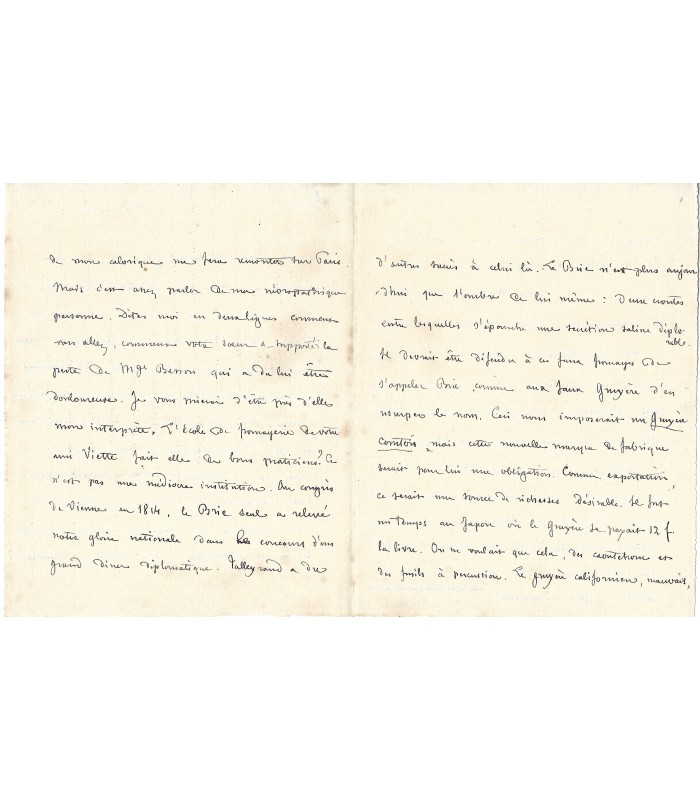 de mon calorique me fera remonter sur Paris.
Mais c'est assez parler de ma
personne. Dites moi en deux lignes comment
vous allez, comment votre sœur a supporté la
perte de Mgr Besson qui a du lui être
douloureuse. Je vous prierai d'être près d'elle
mon interprète. L'École de fromagerie de votre
ami Viette fait elle de bons praticiens? Ce
n'est pas une médiocre institution. Au congrès
de Vienne en 1814, le Brie seul a relevé
notre gloire nationale dans le concours d'un
grand diner diplomatique. Talleyrand a du
d'autres succès à celui là. Le Brie n'est plus aujour
d'hui que l'ombre de lui même : Deux croutes
entre lesquelles s'épanche une sécrétion saline déplo-
rable.
Il devrait être défendu à ces faux fromages de
s'appeler Brie, comme aux faux Gruyère d'en
usurper le nom. Ceci nous imposerait un Gruyère
comtois, mais cette nouvelle marque de fabrique
serait pour lui une obligation. Comme exportation,
ce serait une source de richesses désirable. Il fut
un temps au Japon où le gruyère se payait 12 f.
la livre. On ne voulait que cela, des caoutchouc et
des fusils à percussion. Le gruyère californien, mauvais,